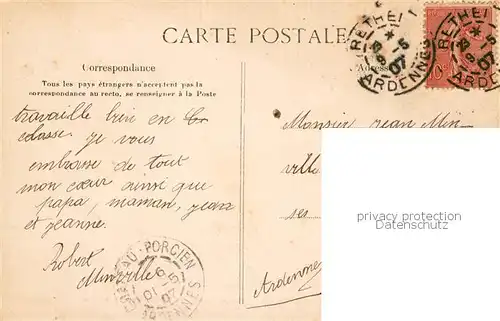 CARTE POSTALE
Correspondance
Tous les pays étrangers n'acceptent pas la
correspondance au recto, se renseigner à la Poste
Adresse
travaille bien en
classe. je vous
embrasse de tout
mon cœur ainsi que
papa, maman,
et jeanne.
Robert
Minville
Monsieur jean Min-
ville
ses
Ardennes
RETHEL
8-5
07
ARDENNES
RETHEL
8-5
07
ARDENNES
PORCIEN
6-5
07
ARDENNES
privacy protection
watermark